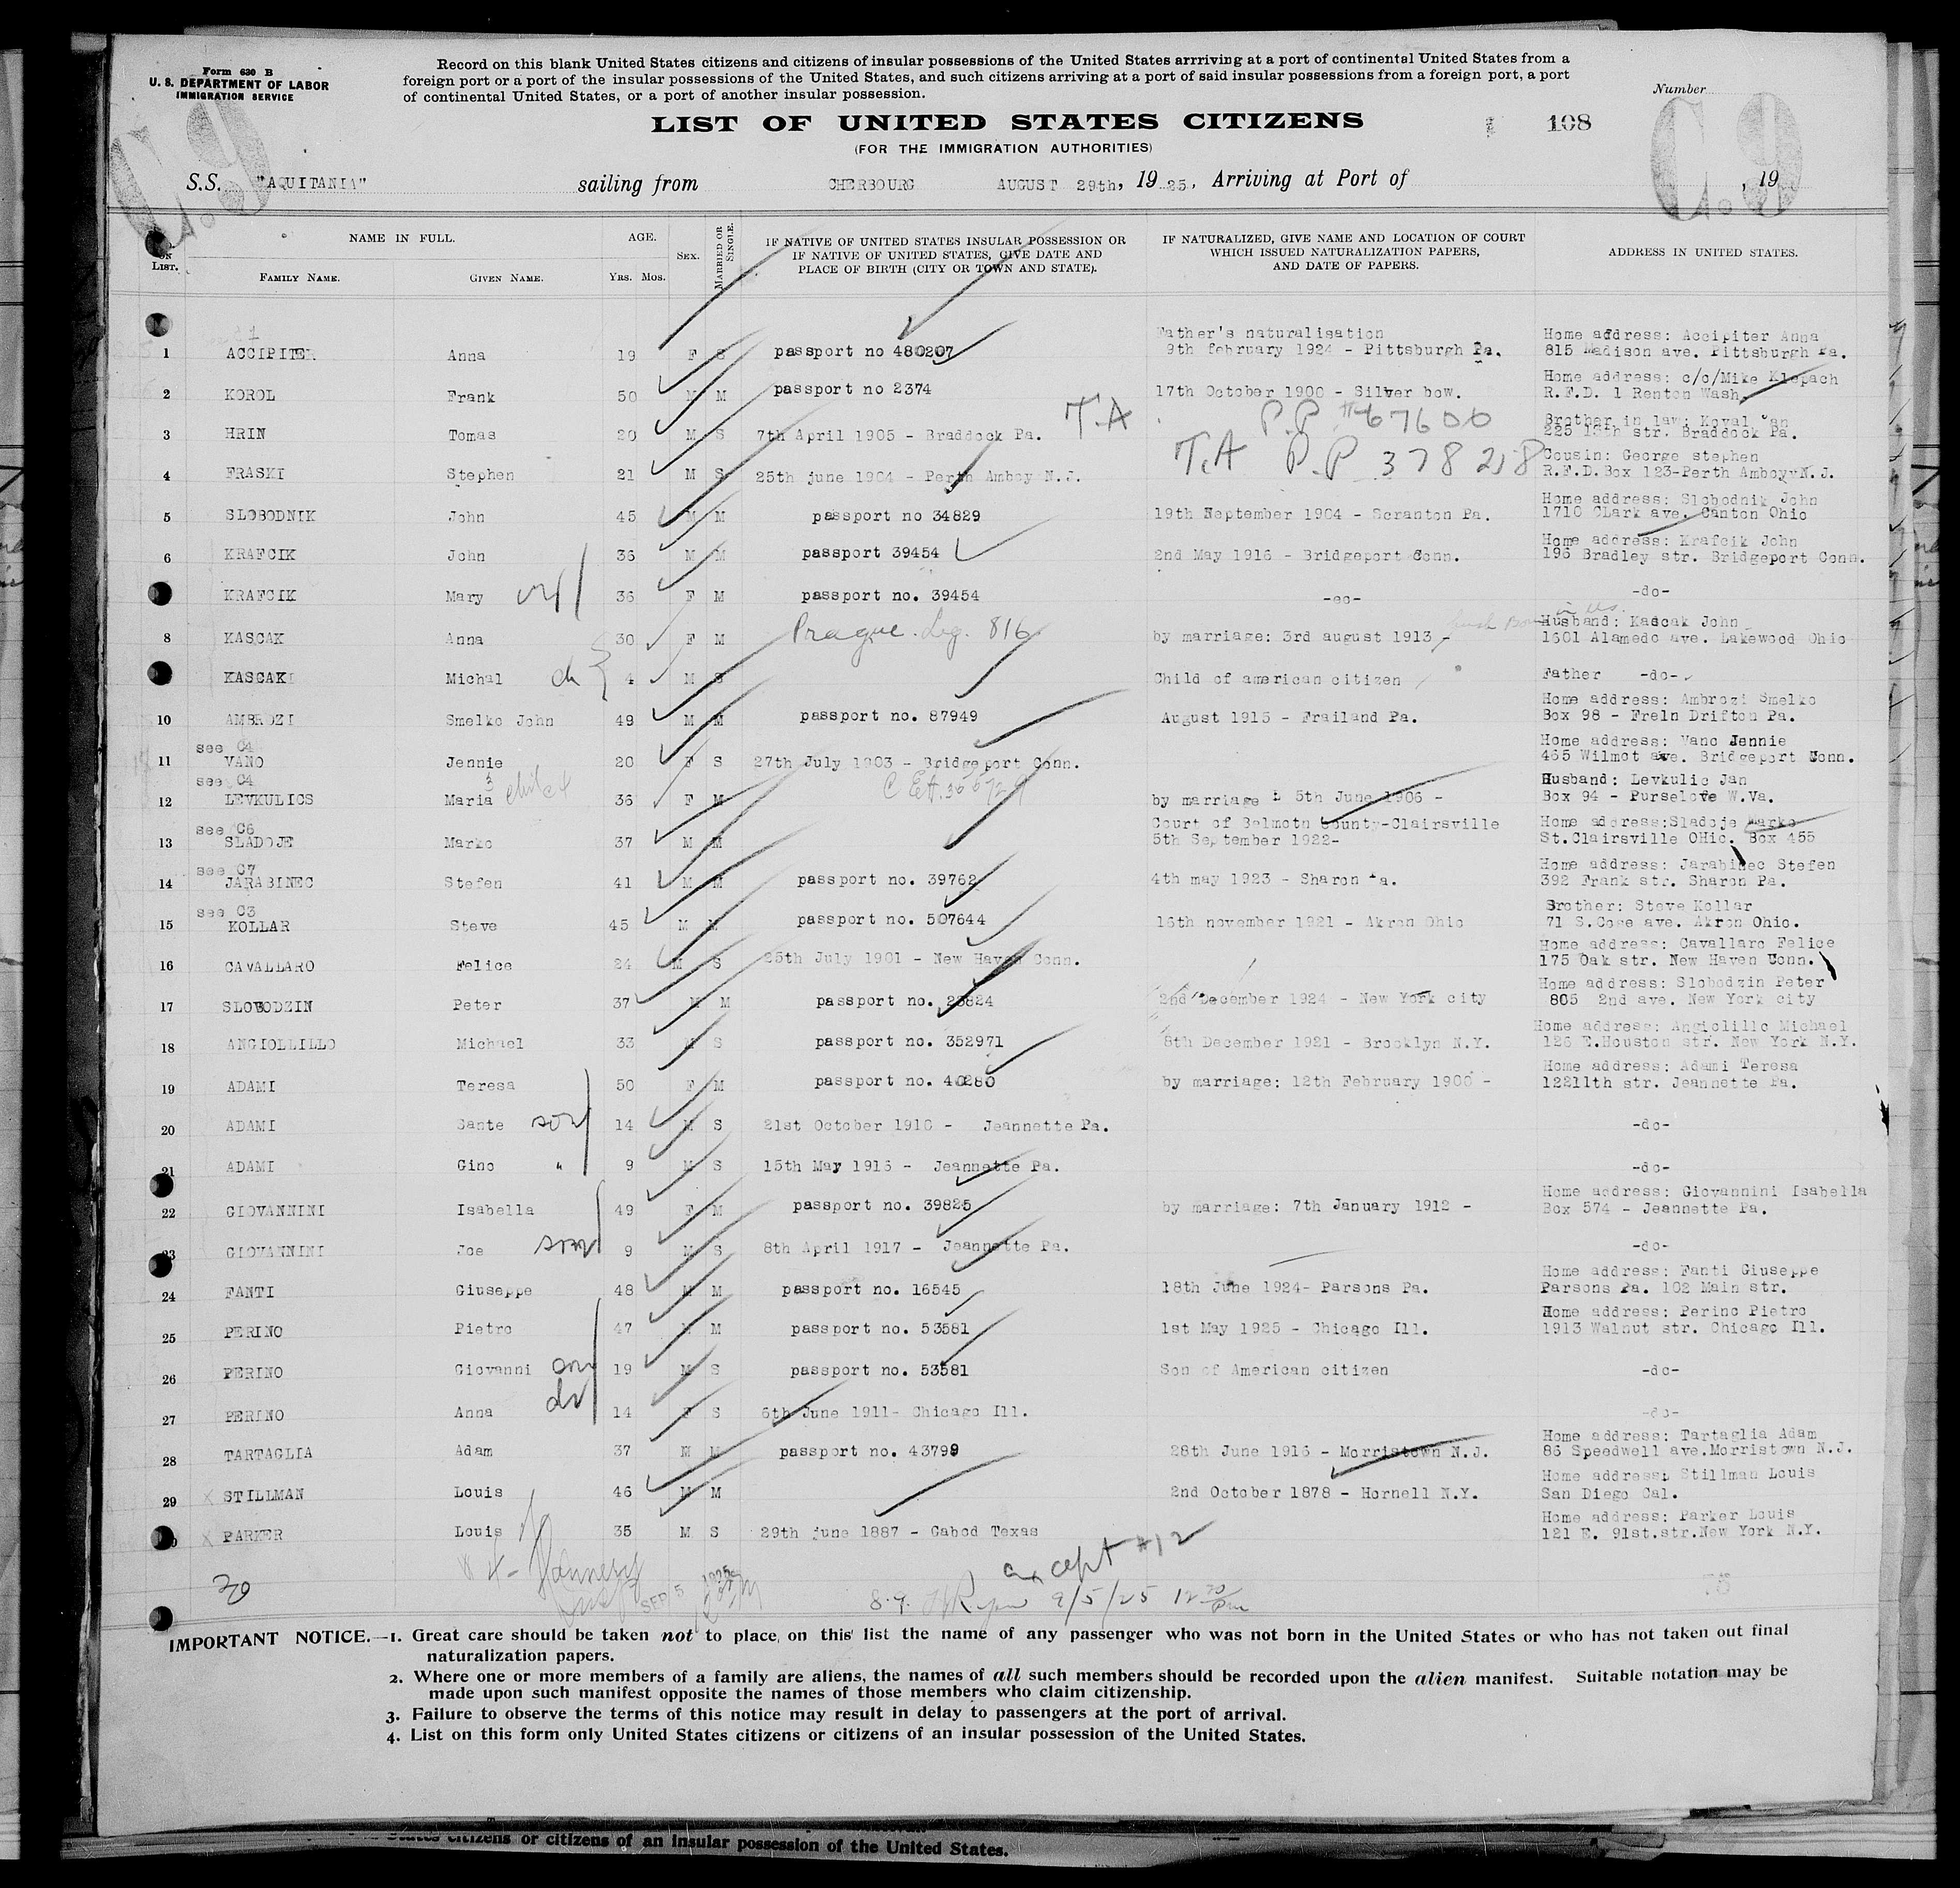 Form 630 B
U. S. DEPARTMENT OF LABOR
IMMIGRATION SERVICE
Record on this blank United States citizens and citizens of insular possessions of the United States arrriving at a port of continental United States from a
foreign port or a port of the insular possessions of the United States, and such citizens arriving at a port of said insular possessions from a foreign port, a port
of continental United States, or a port of another insular possession.
Number
C.9
C.9
LIST OF UNITED STATES CITIZENS
108
(FOR THE IMMIGRATION AUTHORITIES)
S.S. "AQUITANIA" sailing from CHERBOURG AUGUST 29th, 1925, Arriving at Port of , 19
ON LIST.
NAME IN FULL.
FAMILY NAME. GIVEN NAME.
AGE.
YRS. MOS.
SEX.
MARRIED OR SINGLE.
IF NATIVE OF UNITED STATES INSULAR POSSESSION OR
IF NATIVE OF UNITED STATES, GIVE DATE AND
PLACE OF BIRTH (CITY OR TOWN AND STATE).
IF NATURALIZED, GIVE NAME AND LOCATION OF COURT
WHICH ISSUED NATURALIZATION PAPERS,
AND DATE OF PAPERS.
ADDRESS IN UNITED STATES.
Father's naturalisation Home address: Accipiter Anna
1 ACCIPITER Anna 19 F S passport no 480207 9th february 1924 - Pittsburgh Pa. 815 Madison ave. Pittsburgh Pa.
Home address: c/c/Mike Klepach
2 KOROL Frank 50 M M passport no 2374 17th October 1900 - Silver bow. R.F.D. 1 Renton Wash.
T.A P.P. #67600 Brother in law: Koval Jan
3 HRIN Tomas 20 M S 7th April 1905 - Braddock Pa. 225 13th str. Braddock Pa.
T.A P.P. 378218 Cousin: George stephen
4 FRASKI Stephen 21 M S 25th june 1904 - Perth Amboy N.J. R.F.D.Box 123-Perth Amboy N.J.
Home address: Slobodnik John
5 SLOBODNIK John 45 M M passport no 34829 19th September 1904 - Scranton Pa. 1710 CLark ave. Canton Ohio
Home address: Krafcik John
6 KRAFCIK John 36 M M passport 39454 2nd May 1916 - Bridgeport Conn. 196 Bradley str. Bridgeport Conn.
KRAFCIK Mary 36 F M passport no. 39454 -do- -do-
Husband: Kascak John
8 KASCAK Anna 30 F M Prague. Leg. 816 by marriage: 3rd august 1913 - 1601 Alamedo ave. Lakewood Ohio
KASCAK Michal ch 4 M S Child of american citizen Father -do-
Home address: Ambrozi Smelko
10 AMBROZI Smelko John 49 M M passport no. 87949 August 1915 - Frailand Pa. Box 98 - Freln Drifton Pa.
see C4 Home address: Vano Jennie
11 VANO Jennie 20 F S 27th July 1903 - Bridgeport Conn. 465 Wilmot ave. Bridgeport Conn.
see C4 Husband: Levkulic Jan
12 LEVKULICS Maria & child 36 F M by marriage 5th June 1906 - Box 94 - Purselove W.Va.
see C6 Court of Belmotn County-Clairsville Home address:Sladoje Marko
13 SLADOJE Marko 37 M M 5th September 1922- St.Clairsville OHio. Box 455
see C7 Home address: Jarabinec Stefen
14 JARABINEC Stefen 41 M M passport no. 39762 4th may 1923 - Sharon Pa. 392 Frank str. Sharon Pa.
see C3 Brother: Steve Kollar
15 KOLLAR Steve 45 M M passport no. 507644 16th november 1921 - Akron Ohio 71 S.Coge ave. Akron Ohio.
Home address: Cavallaro Felice
16 CAVALLARO Felice 24 M S 25th July 1901 - New Haven Conn. 175 Oak str. New Haven Conn.
Home address: Slobodzin Peter
17 SLOBODZIN Peter 37 M M passport no. 23824 2nd December 1924 - New York city 805 2nd ave. New York city
Home address: Angiolillo Michael
18 ANGIOLLILLO Michael 33 M S passport no. 352971 8th December 1921 - Brooklyn N.Y. 126 E.Houston str. New York N.Y.
Home address: Adami Teresa
19 ADAMI Teresa 50 F M passport no. 40280 by marriage: 12th February 1900 - 12211th str. Jeannette Pa.
20 ADAMI Sante son 14 M S 21st October 1910 - Jeannette Pa. -do-
21 ADAMI Gino " 9 M S 15th May 1916 - Jeannette Pa. -do-
Home address: Giovannini Isabella
22 GIOVANNINI Isabella 49 F M passport no. 39825 by marriage: 7th January 1912 - Box 574 - Jeannette Pa.
23 GIOVANNINI Joe son 9 M S 8th April 1917 - Jeannette Pa. -do-
Home address: Fanti Giuseppe
24 FANTI Giuseppe 48 M M passport no. 16545 18th June 1924- Parsons Pa. Parsons Pa. 102 Main str.
Home address: Perino Pietro
25 PERINO Pietro 47 M M passport no. 53581 1st May 1925 - Chicago Ill. 1913 Walnut str. Chicago Ill.
26 PERINO Giovanni son 19 M S passport no. 53581 Son of American citizen -do-
27 PERINO Anna da 14 F S 6th June 1911- Chicago Ill. -do-
Home address: Tartaglia Adam
28 TARTAGLIA Adam 37 M M passport no. 43799 28th June 1916 - Morristown N.J. 86 Speedwell ave.Morristown N.J.
Home address: Stillman Louis
29 X STILLMAN Louis 46 M M 2nd October 1878 - Hornell N.Y. San Diego Cal.
Home address: Parker Louis
X PARKER Louis 35 M S 29th june 1887 - Gabod Texas 121 E. 91st.str.New York N.Y.
except #12
30 SEP 5 1925 9/5/25 12 20 pm
IMPORTANT NOTICE.—1. Great care should be taken not to place on this list the name of any passenger who was not born in the United States or who has not taken out final
naturalization papers.
2. Where one or more members of a family are aliens, the names of all such members should be recorded upon the alien manifest. Suitable notation may be
made upon such manifest opposite the names of those members who claim citizenship.
3. Failure to observe the terms of this notice may result in delay to passengers at the port of arrival.
4. List on this form only United States citizens or citizens of an insular possession of the United States.
States citizens or citizens of an insular possession of the United States.